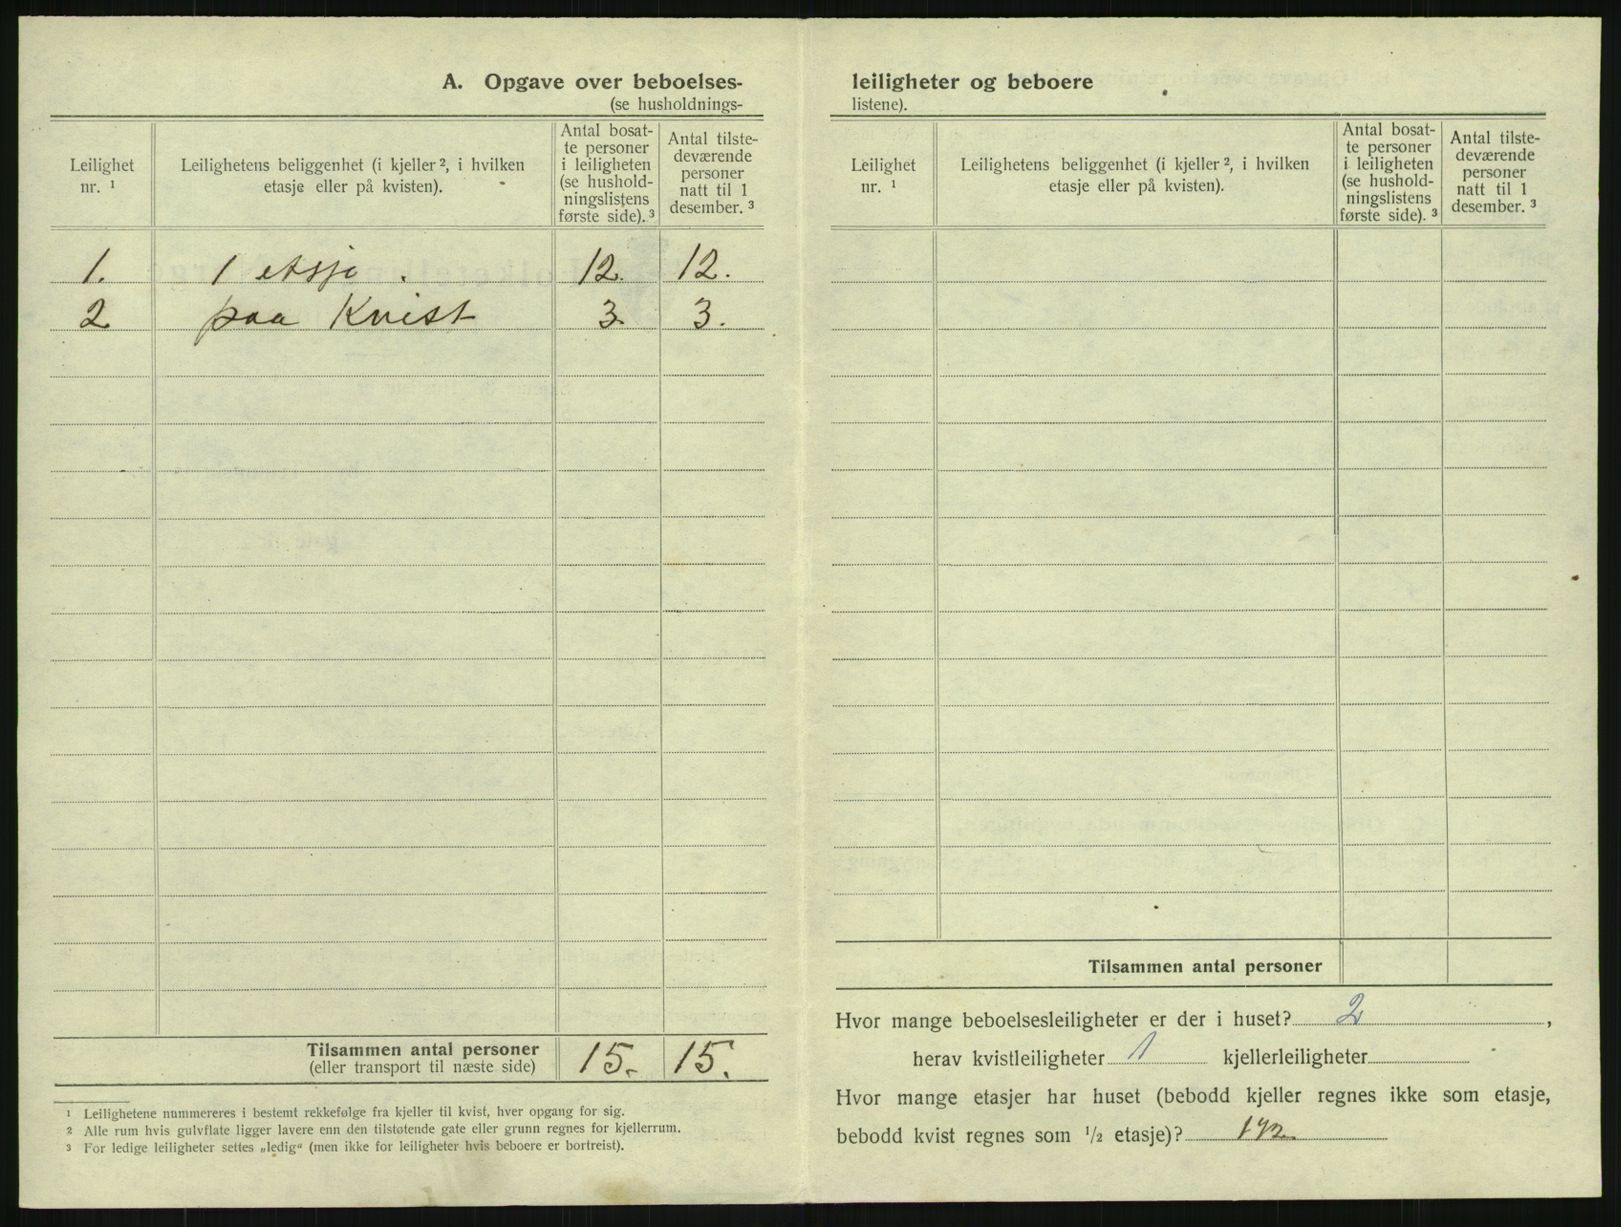 A. Opgave over beboelses-
(se husholdnings-
Leilighet nr. ¹
Leilighetens beliggenhet (i kjeller ², i hvilken etasje eller på kvisten).
Antal bosat-
te personer
i leiligheten
(se hushold-
ningslistens
første side). ³
Antal tilste-
deværende
personer
natt til 1
desember. ³
1. 1 etsje . 12. 12.
2 paa Kvist 3. 3.
Tilsammen antal personer 15.- 15.
(eller transport til næste side)
¹ Leilighetene nummereres i bestemt rekkefølge fra kjeller til kvist, hver opgang for sig.
² Alle rum hvis gulvflate ligger lavere enn den tilstøtende gate eller grunn regnes for kjellerrum.
³ For ledige leiligheter settes „ledig“ (men ikke for leiligheter hvis beboere er bortreist).
leiligheter og beboere
listene).
Leilighet nr. ¹
Leilighetens beliggenhet (i kjeller ², i hvilken etasje eller på kvisten).
Antal bosat-
te personer
i leiligheten
(se hushold-
ningslistens
første side). ³
Antal tilste-
deværende
personer
natt til 1
desember. ³
Tilsammen antal personer
Hvor mange beboelsesleiligheter er der i huset? 2 ,
herav kvistleiligheter 1 kjellerleiligheter
Hvor mange etasjer har huset (bebodd kjeller regnes ikke som etasje,
bebodd kvist regnes som ½ etasje)? 1½